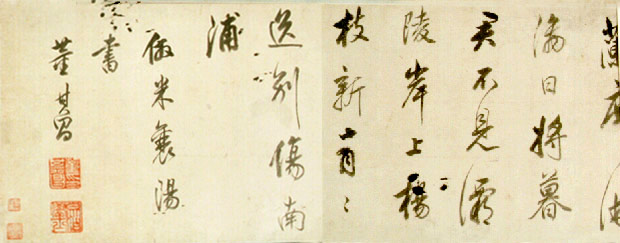 日將暮
君不見灞
陵岸上楊
枝新青〻
送別傷南
浦
倣米襄陽
書
董其昌